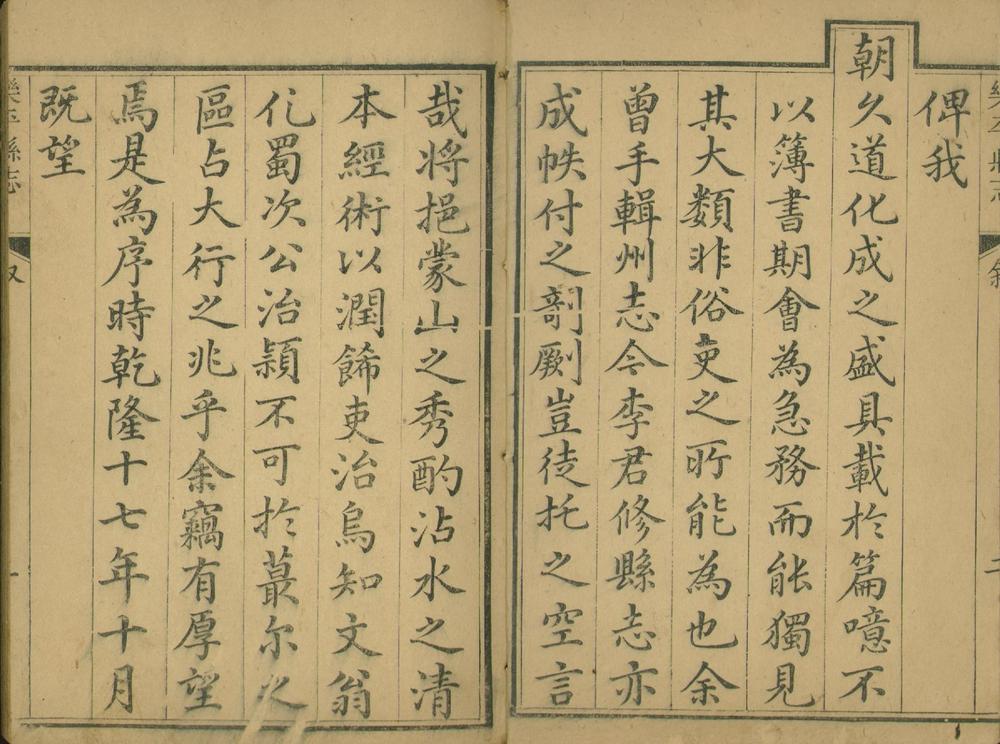 俾我
朝久道化成之盛具載於篇噫不
以簿書期會為急務而能獨見
其大類非俗吏之所能為也余
曾手輯州志今李君修縣志亦
成帙付之剞劂豈徒托之空言
哉将挹蒙山之秀酌沾水之清
本經術以潤餙吏治烏知文翁
化蜀次公治潁不可於蕞尔之
區占大行之兆乎余竊有厚望
焉是為序時乾隆十七年十月
既望